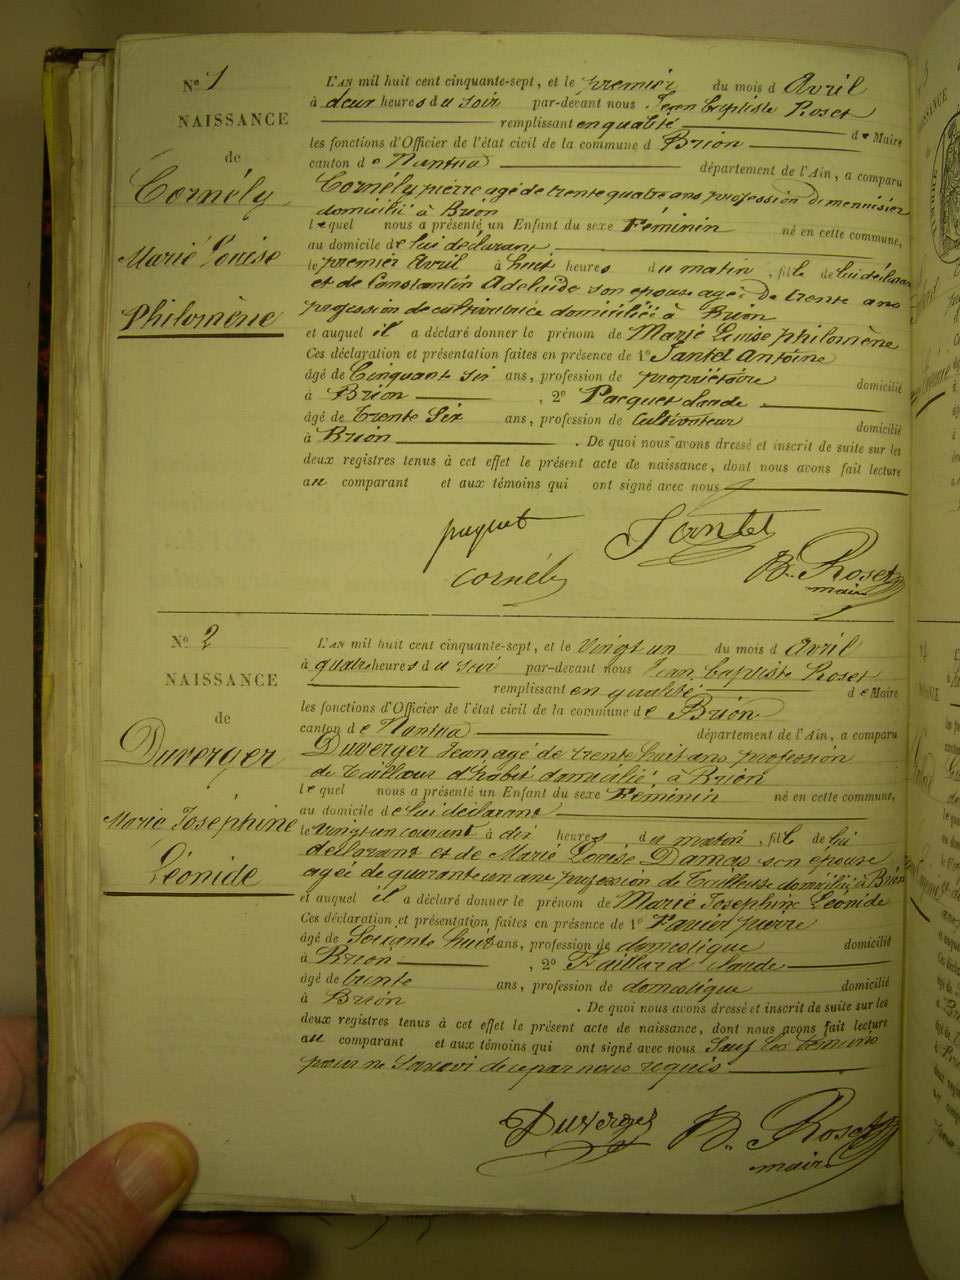 N° 1
NAISSANCE
de
Cornély
Marié Louise
Philomène
L'AN mil huit cent cinquante-sept, et le premier du mois d Avril
à deux heures du soir par-devant nous Jean Baptiste Roset
remplissant en qualité de Maire
les fonctions d'Officier de l'état civil de la commune d Brion
canton de Nantua département de l'Ain, a comparu
Cornély pierre agé de trente quatre ans profession De menuisier
domicilié à Brion
lequel nous a présenté un Enfant du sexe Féminin né en cette commune,
au domicile de lui déclarant
le premier Avril à huit heures du matin, fille de lui déclarant
et de Constantin Adelaide son épouse agée De trente ans
profession de cultivatrice domiciliée à Brion
et auquel il a déclaré donner le prénom de Marie Louise philomène
Ces déclaration et présentation faites en présence de 1° Santel Antoine
âgé de Cinquante six ans, profession de propriétaire domicilié
à Brion, 2° Pacquet claude
âgé de trente Six ans, profession de Cultivateur domicilié
à Brion. De quoi nous avons dressé et inscrit de suite sur les
deux registres tenus à cet effet le présent acte de naissance, dont nous avons fait lecture
au comparant et aux témoins qui ont signé avec nous
paquet Santel
cornély B. Roset
maire
N° 2
NAISSANCE
de
Duverger
Marie Joséphine
Léonide
L'AN mil huit cent cinquante-sept, et le Vingt un du mois d Avril
à quatre heures du soir par-devant nous Jean baptiste Roset
remplissant en qualité de Maire
les fonctions d'Officier de l'état civil de la commune de Brion
canton de Nantua département de l'Ain, a comparu
Duverger Jean agé de trente huit ans profession
de tailleur d'habit domicilié à Brion
lequel nous a présenté un Enfant du sexe Féminin né en cette commune,
au domicile de lui déclarant
le vingt un courant à dix heures du matin, fille de lui
déclarant et de Marie Louise Damas son épouse
agée de quarante un ans profession de Tailleuse domicilié à Brion
et auquel il a déclaré donner le prénom de Marie Josephine Léonide
Ces déclaration et présentation faites en présence de 1° Favier pierre
âgé de Soixante huit ans, profession de domestique domicilié
à Brion, 2° Faillard claude
âgé de trente ans, profession de domestique domicilié
à Brion. De quoi nous avons dressé et inscrit de suite sur les
deux registres tenus à cet effet le présent acte de naissance, dont nous avons fait lecture
au comparant et aux témoins qui ont signé avec nous Sauf les témoins
pour ne Savoir de ce par nous requis
Duverger B. Roset
maire